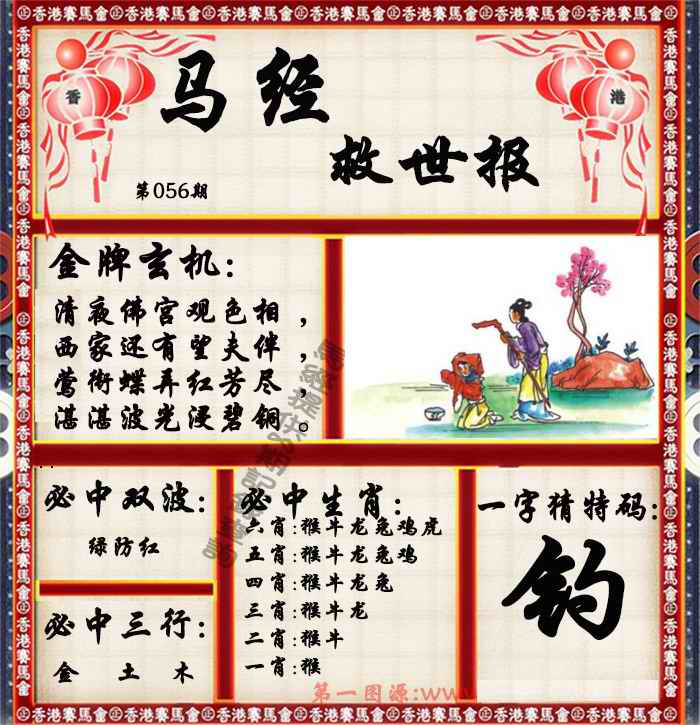 香港賽馬會
香
港
马经
救世报
第056期
金牌玄机:
清夜佛宫观色相，
西家还有望夫伴，
莺衔蝶弄红芳尽，
湛湛波光浸碧铜。
必中双波:
绿防红
必中三行:
金 土 木
必中生肖:
六肖:猴牛龙兔鸡虎
五肖:猴牛龙兔鸡
四肖:猴牛龙兔
三肖:猴牛龙
二肖:猴牛
一肖:猴
一字猜特码:
钓
第一图源:www